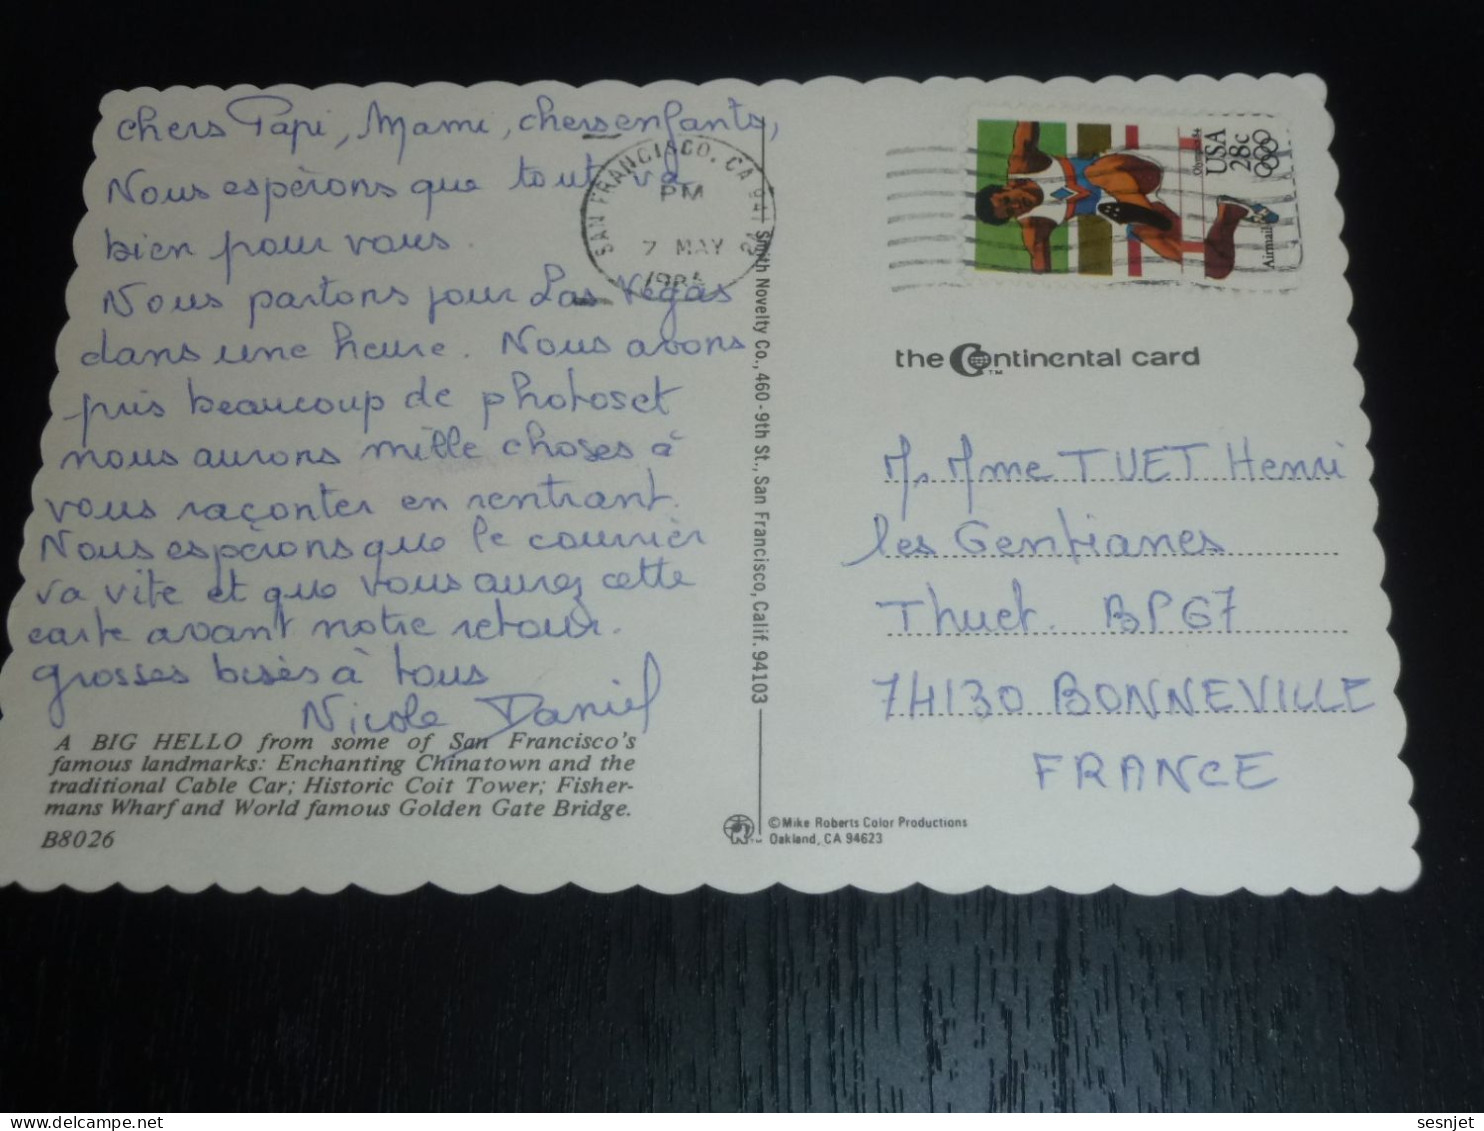 chers Papi, Mami, chers enfants,
Nous espérons que tout va
bien pour vous.
Nous partons pour Las Vegas
dans une heure. Nous avons
pris beaucoup de photos et
nous aurons mille choses à
vous raconter en rentrant.
Nous espérons que le courrier
va vite et que vous aurez cette
carte avant notre retour.
grosses bises à tous
Nicole Daniel
A BIG HELLO from some of San Francisco's
famous landmarks: Enchanting Chinatown and the
traditional Cable Car; Historic Coit Tower; Fisher-
mans Wharf and World famous Golden Gate Bridge.
B8026
SAN FRANCISCO, CA 941
PM
7 MAY
Smith Novelty Co., 460-9th St., San Francisco, Calif. 94103
©Mike Roberts Color Productions
Oakland, CA 94623
USA
28c
Airmail
the Continental card
TM
M. Mme TUET Henri
les Gentianes
Thuet. BP67
74130 BONNEVILLE
FRANCE
sesnjet